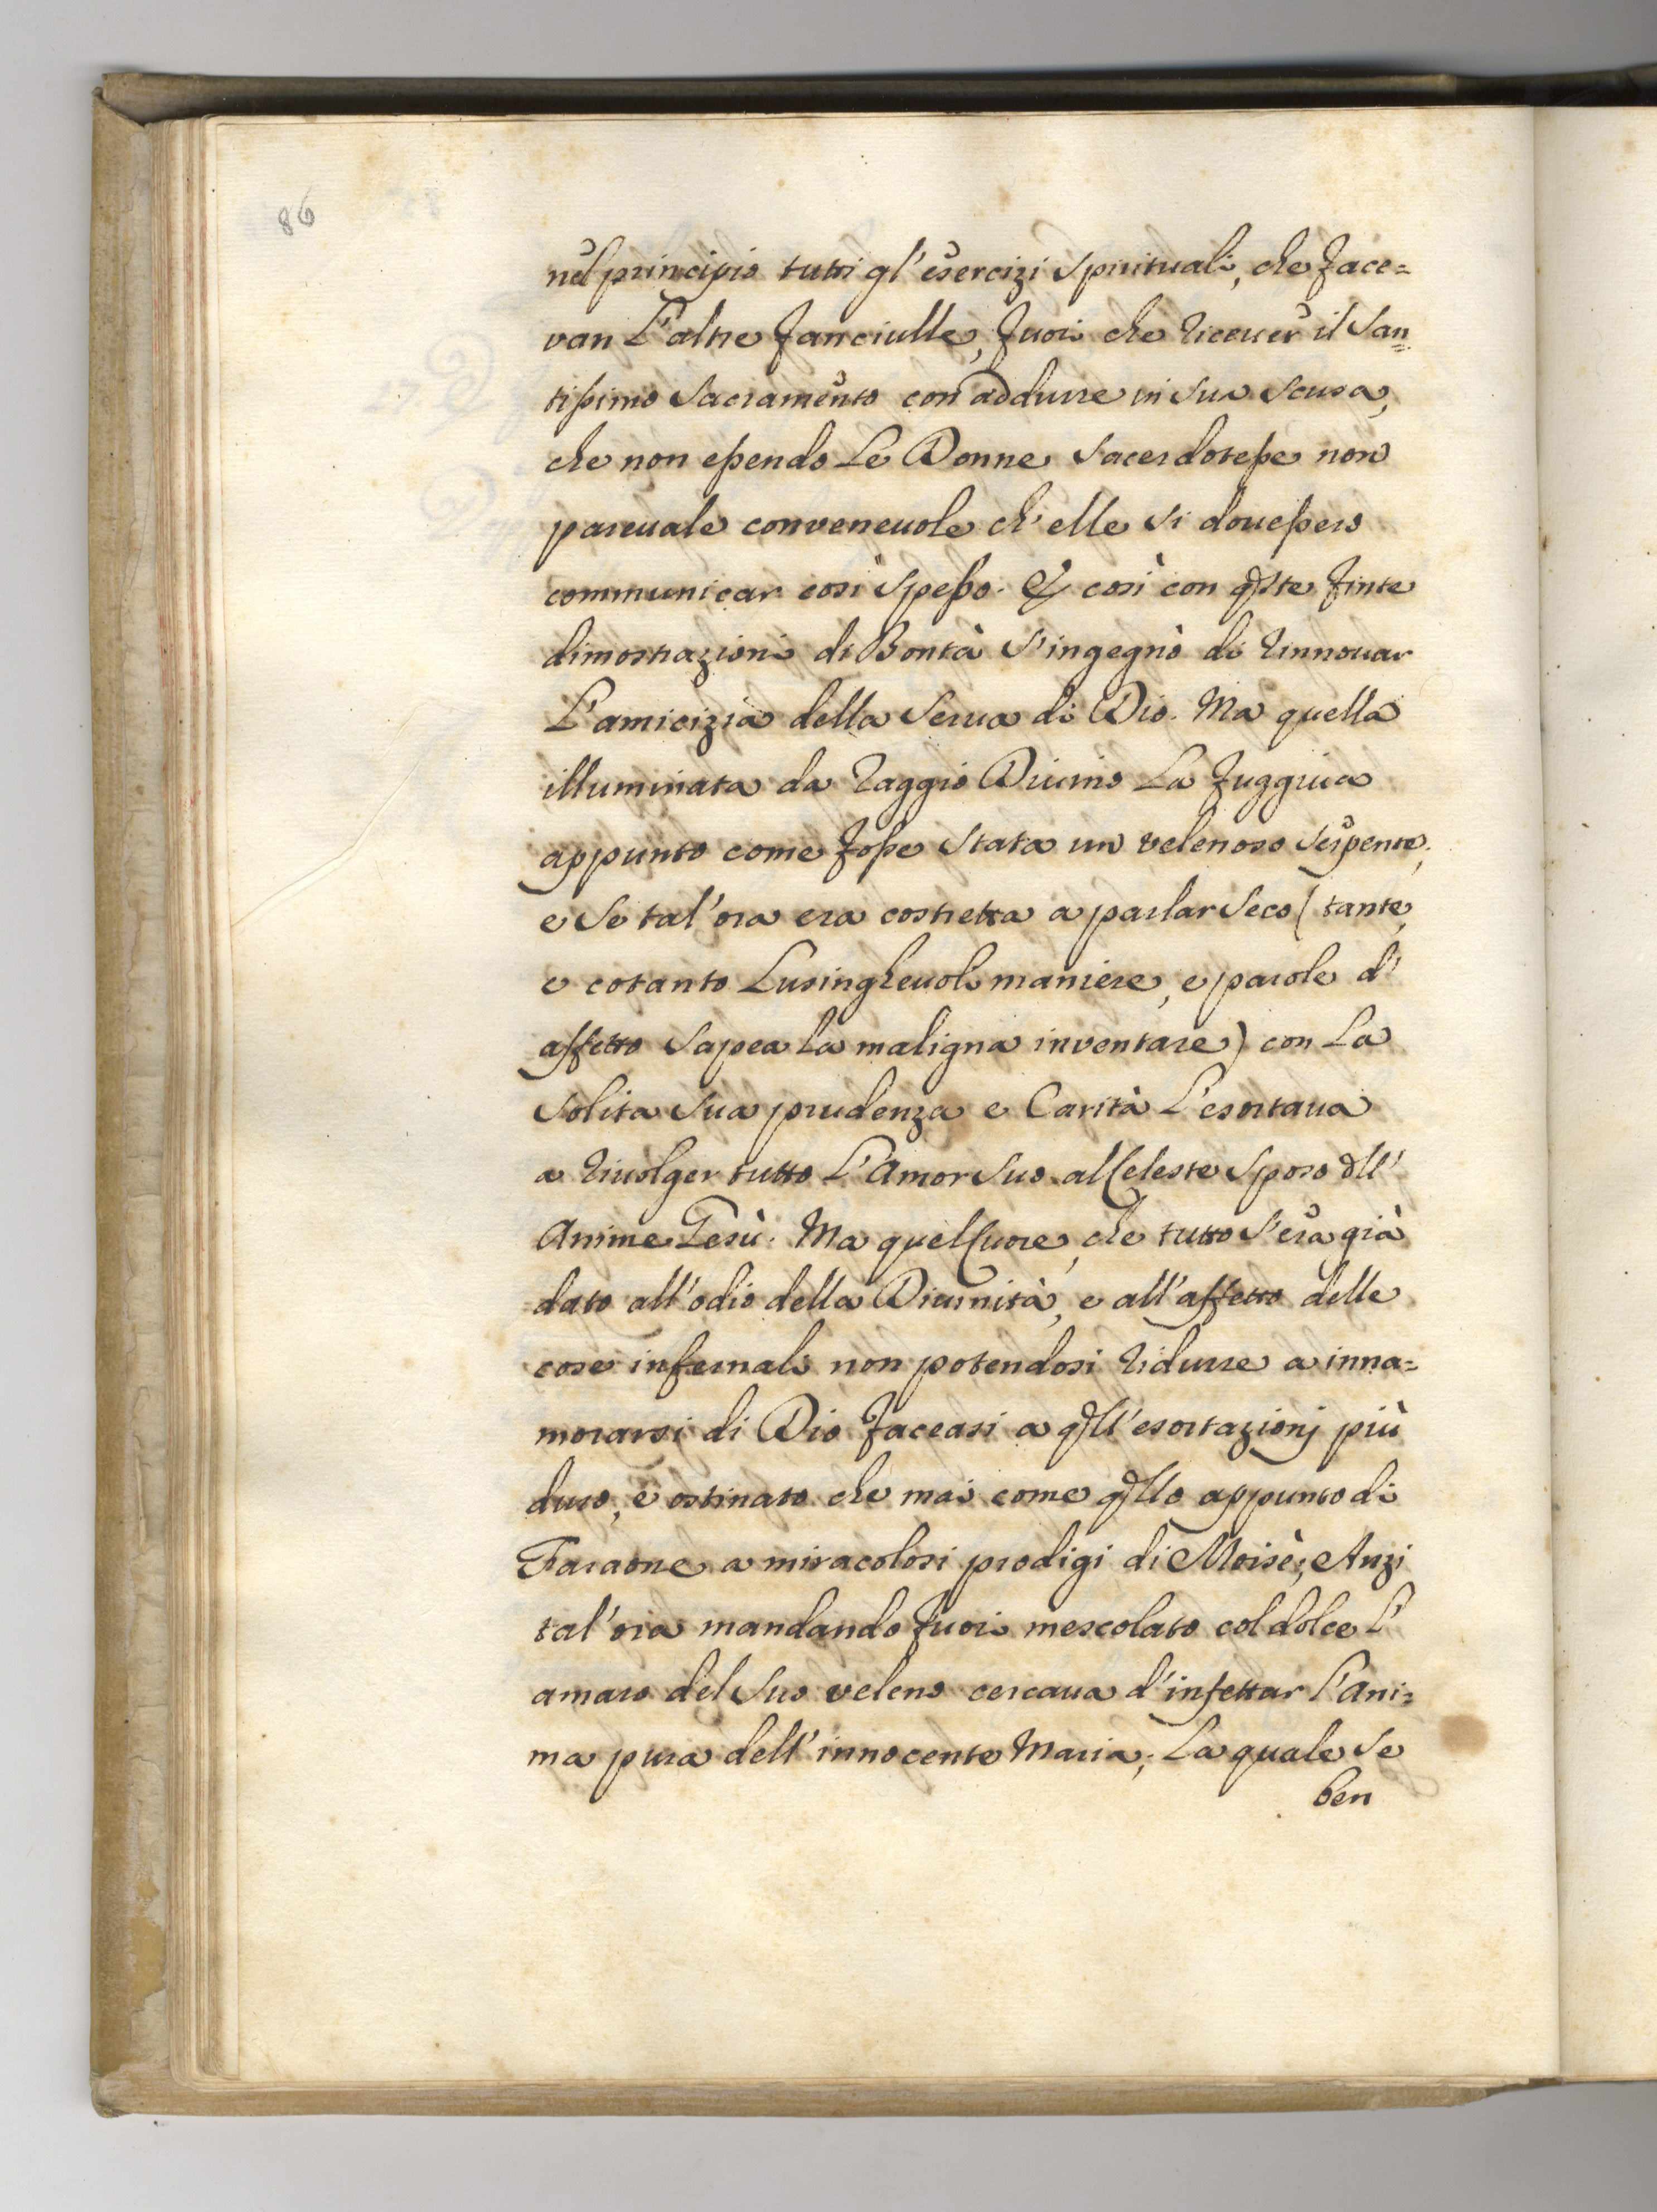 86
nel principio tutti gl'esercizi spirituali, che face=
van l'altre fanciulle, fuori che riceuer il San=
tissimo Sacramento con addurre in sua scusa,
che non essendo le Donne Sacerdotesse non
pareuale conveneuole ch'elle si douessero
communicar così spesso. Et così con qste finte
dimostrazioni di Bontà s'ingegnò di rinnouar
l'amicizia della Serua di Dio. Ma quella
illuminata da raggio Diuino la fuggiua
appunto come fosse stata un velenoso serpente;
e se tal'ora era costretta a parlar seco (tante,
e cotanto lusingheuoli maniere, e parole d'
affetto sapea la maligna inventare) con la
solita sua prudenza e Carità l'esortaua
a riuolger tutto l'Amor suo al Celeste Sposo dll'
Anime Gesù. Ma quel Cuore, che tutto s'era già
dato all'odio della Diuinità, e all'affetto delle
cose infernali non potendosi ridurre a inna=
morarsi di Dio faceasi a qll'esortazionj più
duro, e ostinato che mai come qllo appunto di
Faraone a miracolosi prodigi di Moisè; Anzi
tal'ora mandando fuori mescolato col dolce l'
amaro del suo veleno cercaua d'infettar l'Ani=
ma pura dell'innocente Maria; La quale se
ben